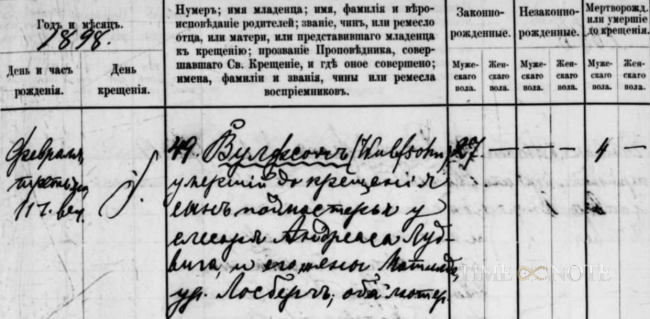 Годъ и мѣсяцъ.
1898.
День и часъ рожденія.
День крещенія.
Нумеръ; имя младенца; имя, фамилія и вѣро-
исповѣданіе родителей; званіе, чинъ, или ремесло
отца, или матери, или представившаго младенца
къ крещенію; прозваніе Проповѣдника, совер-
шавшаго Св. Крещеніе, и гдѣ оное совершено;
имена, фамиліи и званія, чины или ремесла
воспріемниковъ.
Законно-
рожденные.
Муже-
скаго
пола.
Жен-
скаго
пола.
Незаконно-
рожденные.
Муже-
скаго
пола.
Жен-
скаго
пола.
Мертворожд.
или умершіе
до крещенія.
Муже-
скаго
пола.
Жен-
скаго
пола.
Февраля
третьяго
11 ч. веч.
49. Вульфсонъ (Wulfsohn) 27. — — — 4 —
умершій до крещенія
сынъ подмастерья
слесаря Андреаса Луд-
вига, и его жены Матильды
ур. Лосбергъ, оба лютер
TIMENOTE